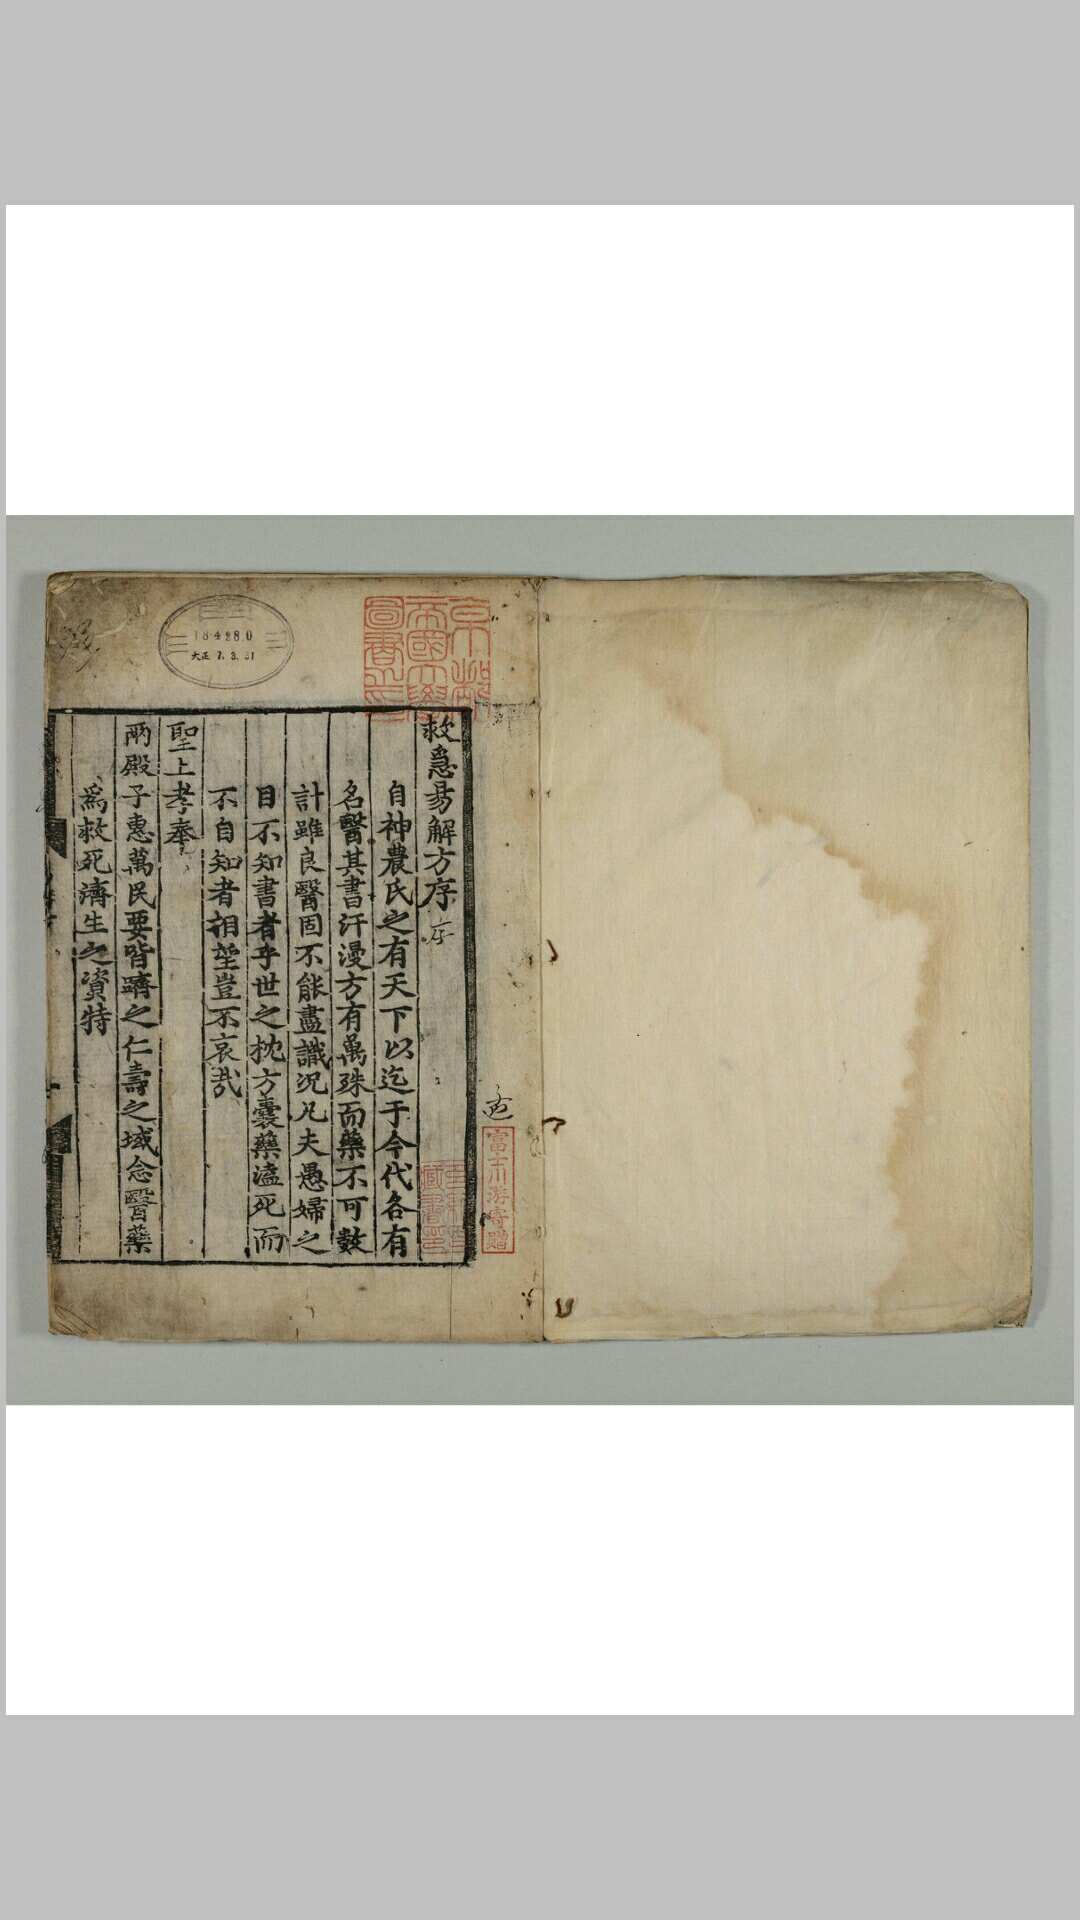 救急易解方序
自神農氏之有天下以迄于今代各有
名醫其書汗漫方有萬殊而藥不可數
計雖良醫固不能盡識况凡夫愚婦之
目不知書者乎世之枕方囊藥溘死而
不自知者相望豈不哀哉
聖上孝奉
兩殿子惠萬民要皆躋之仁壽之域念醫藥
爲救死濟生之資特
京都
帝國大學
圖書之印
184980
大正 7. 3. 31
富士川游寄贈